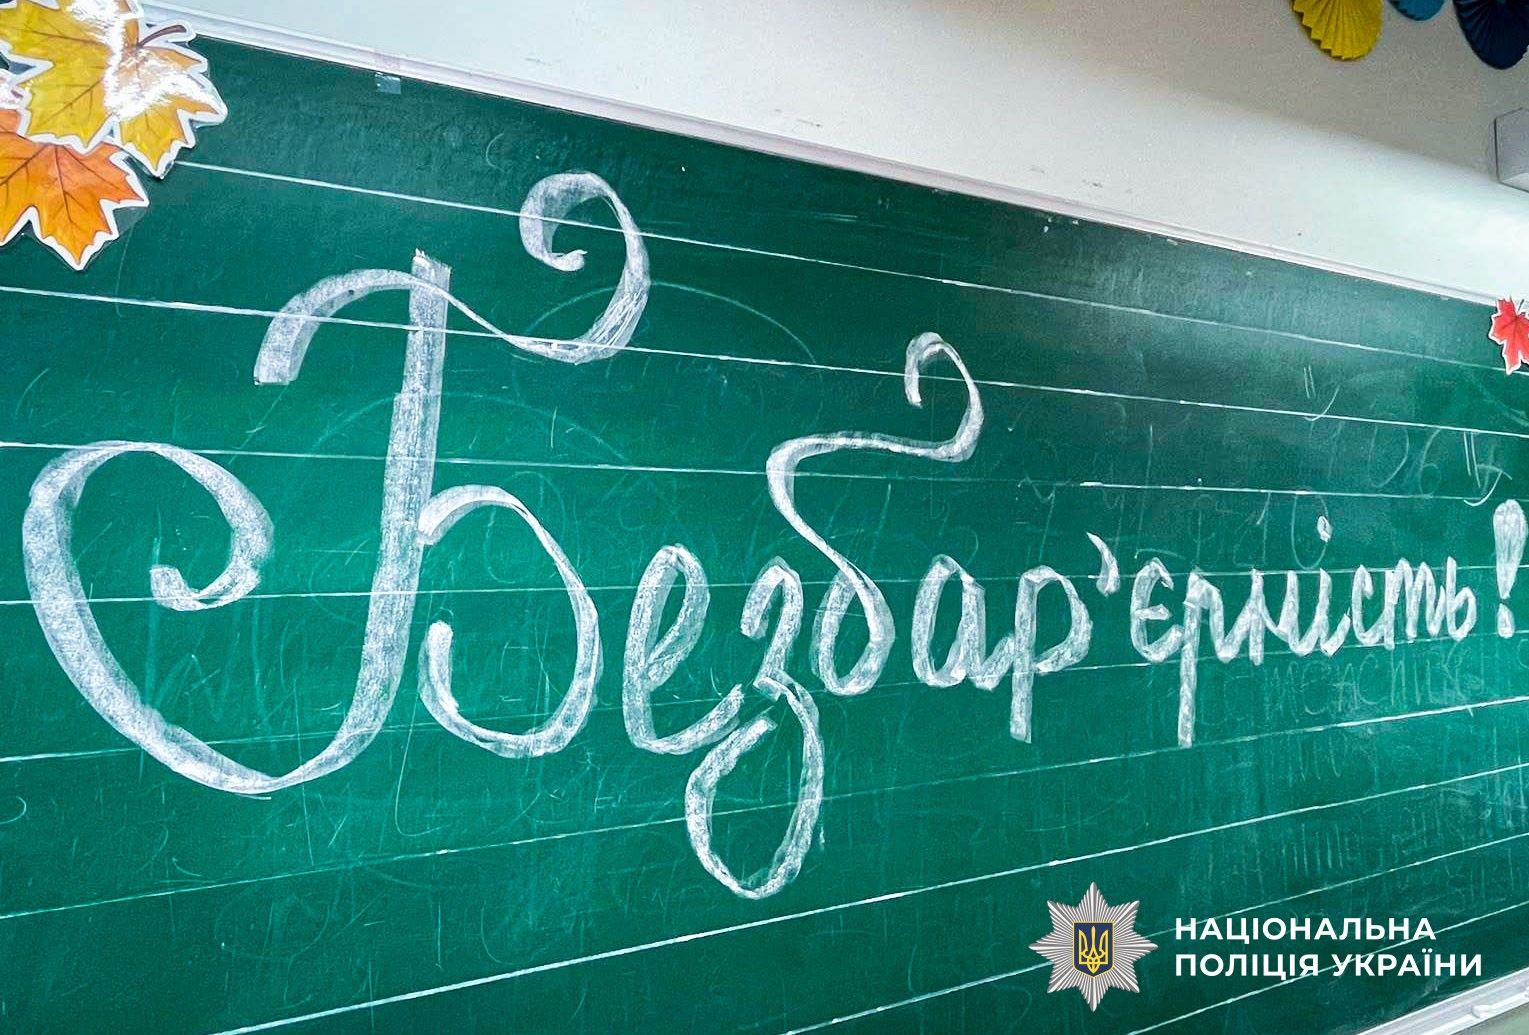 Безбар'єрність!
НАЦІОНАЛЬНА
ПОЛІЦІЯ УКРАЇНИ